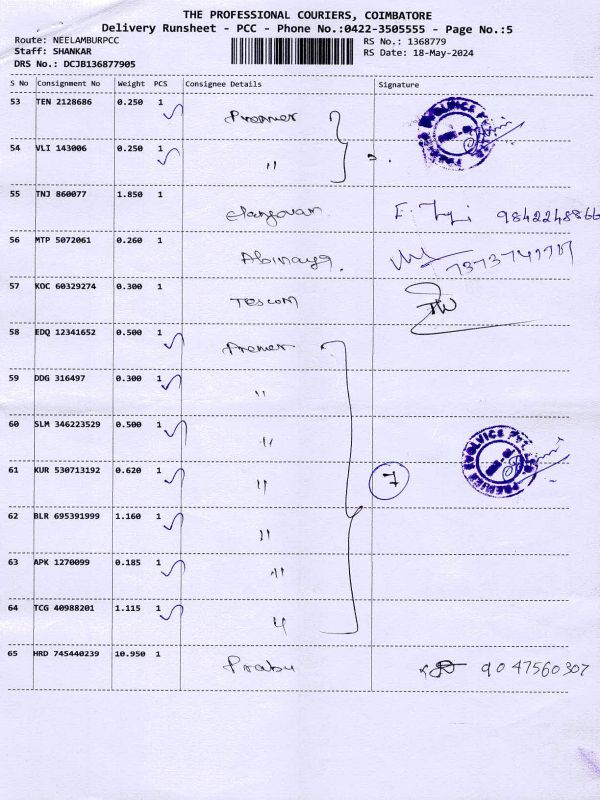 THE PROFESSIONAL COURIERS, COIMBATORE
Delivery Runsheet - PCC - Phone No.:0422-3505555 - Page No.:5
Route: NEELAMBURPCC RS No.: 1368779
Staff: SHANKAR RS Date: 18-May-2024
DRS No.: DCJB136877905
S No Consignment No Weight PCS Consignee Details Signature
53 TEN 2128686 0.250 1 Premier
54 VLI 143006 0.250 1 "
55 TNJ 860077 1.850 1 elangovan 9842248866
56 MTP 5072061 0.260 1 Abinaya
57 KOC 60329274 0.300 1 Tescom
58 EDQ 12341652 0.500 1 Premier
59 DDG 316497 0.300 1 "
60 SLM 346223529 0.500 1 "
61 KUR 530713192 0.620 1 " 7
62 BLR 695391999 1.160 1 "
63 APK 1270099 0.185 1 "
64 TCG 40988201 1.115 1 "
65 HRD 745440239 10.950 1 Prabu 9047560307
PREMIER EVOLVICS PVT